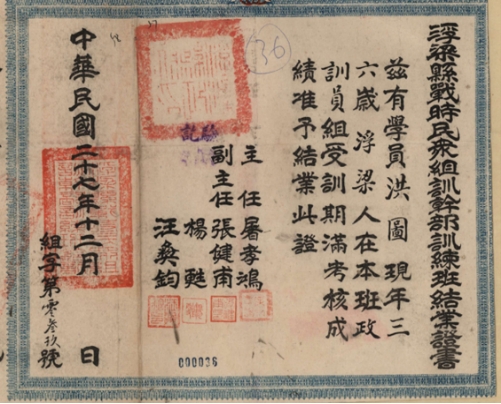 浮梁縣戰時民衆組訓幹部訓練班結業證書
茲有學員洪圖現年三
六歲浮梁人在本班政
訓員組受訓期滿考核成
績准予結業此證
主任屠孝鴻
副主任張健甫
楊甦
汪奐鈞
中華民國二十七年十二月 日
組字第零叁玖號
驗記
36
000036